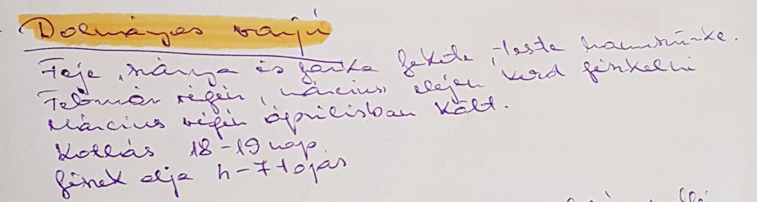 Dolmányos varjú
Feje, szárnya és farka fekete, teste hamuszürke.
Február végén, március elején kezd fészkelni
Március végén áprilisban költ.
Kotlás 18-19 nap.
fészek alja 4-7 tojás